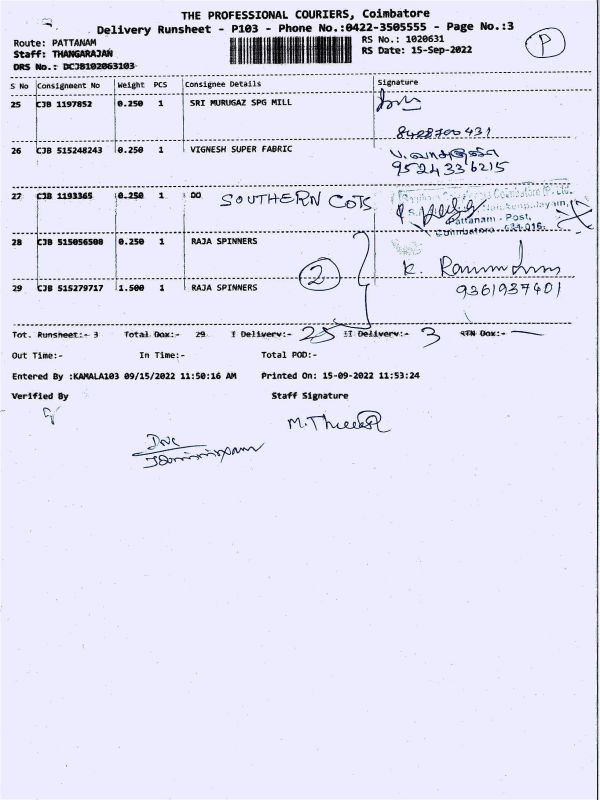 THE PROFESSIONAL COURIERS, Coimbatore
Delivery Runsheet - P103 - Phone No.:0422-3505555 - Page No.:3
Route: PATTANAM
RS No.: 1020631
P
Staff: THANGARAJAN
RS Date: 15-Sep-2022
DRS No.: DCJB102063103
S No Consignment No Weight PCS Consignee Details Signature
25 CJB 1197852 0.250 1 SRI MURUGAZ SPG MILL
8408700431
26 CJB 515248243 0.250 1 VIGNESH SUPER FABRIC
9524336215
27 CJB 1193365 0.250 1 DO SOUTHERN COTS
Pattanam - Post,
28 CJB 515056508 0.250 1 RAJA SPINNERS
2
29 CJB 515279717 1.500 1 RAJA SPINNERS
9361937401
Tot. Runsheet:- 3 Total Dox:- 29 I Delivery:- 25 II Delivery:- 3 RTN Dox:- —
Out Time:- In Time:- Total POD:-
Entered By :KAMALA103 09/15/2022 11:50:16 AM Printed On: 15-09-2022 11:53:24
Verified By Staff Signature